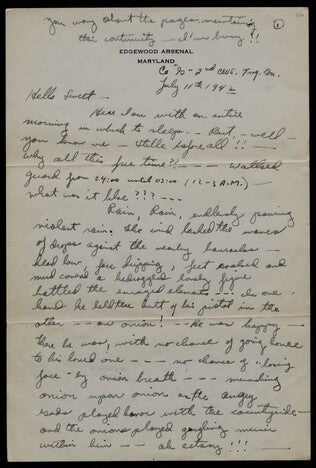 you worry about the pages maintaining
their continuity — I'm busy!!
1
EDGEWOOD ARSENAL
MARYLAND
Co "D" - 2nd CWS. Trg. Bn.
July 11th 1942
Hello Sweet -
Here I am with an entire
morning in which to sleep. - But, - well -
you know me -
why all this free time?!? --- Walked
guard from 24:00 until 03:00 (12-3 A.M.) -
what was it like? ?? ---
Rain, Rain, endlessly pouring
violent rain. The wind lashed the waves
of drops against the nearby barracks -
head low, face dripping, feet soaked and
mud covered a bedraggled lonely figure
battled the enraged elements - In one
hand he held the butt of his pistol in the
other -- an onion! -- He was happy -
there he was, with no chance of going home
to his loved one --- no chance of "losing
face" by onion breath --- munching
onion upon onion as the angry
gods played havoc with the countryside -
and the onions played gurgling music
within him -- ah ectasy!!! -